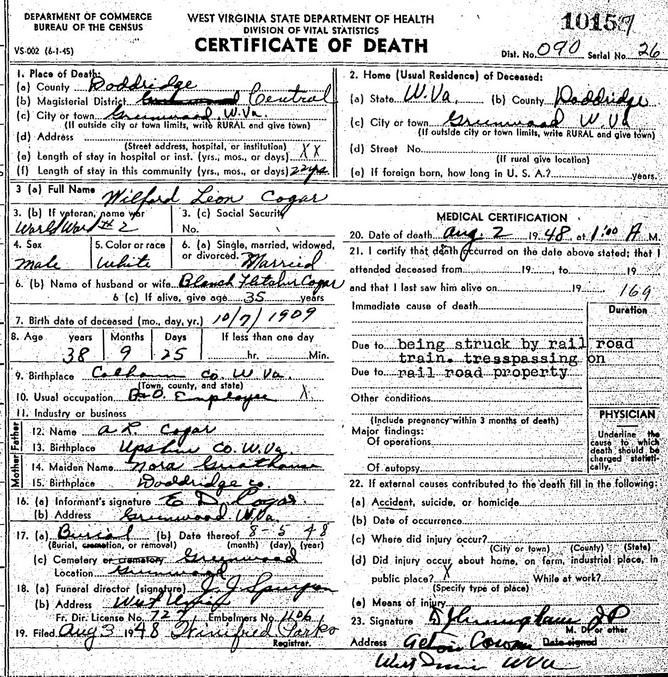 DEPARTMENT OF COMMERCE
BUREAU OF THE CENSUS
VS-002 (6-1-45)
WEST VIRGINIA STATE DEPARTMENT OF HEALTH
DIVISION OF VITAL STATISTICS
CERTIFICATE OF DEATH
Dist. No. 090 Serial No. 26
1. Place of Death:
(a) County Doddridge
(b) Magisterial District Central
(c) City or town Greenwood, W.Va.
(If outside city or town limits, write RURAL and give town)
(d) Address
(Street address, hospital, or institution)
(e) Length of stay in hospital or inst. (yrs., mos., or days) XX
(f) Length of stay in this community (yrs., mos., or days) 22 yrs
2. Home (Usual Residence) of Deceased:
(a) State W.Va. (b) County Doddridge
(c) City or town Greenwood W. Va
(If outside city or town limits, write RURAL and give town)
(d) Street No.
(If rural give location)
(e) If foreign born, how long in U. S. A.? years.
3 (a) Full Name Wilford Leon Cogar
3. (b) If veteran, name war World War #2
3. (c) Social Security No.
4. Sex male
5. Color or race White
6. (a) Single, married, widowed, or divorced. Married
6. (b) Name of husband or wife. Blanch Cogar
6 (c) If alive, give age 35 years
7. Birth date of deceased (mo., day, yr.) 10/7/1909
8. Age years Months Days If less than one day
38 9 25 hr. Min.
9. Birthplace Calhoun Co. W. Va.
(Town, county, and state)
10. Usual occupation B.O. Employee X
11. Industry or business
Father
12. Name A R Cogar
13. Birthplace Upshur Co. W.Va.
Mother
14. Maiden Name Nora Greathouse
15. Birthplace Doddridge Co.
16. (a) Informant's signature E D Cogar
(b) Address Greenwood W.Va.
17. (a) Burial (b) Date thereof 8-5 48
(Burial, cremation, or removal) (month) (day) (year)
(c) Cemetery or crematory Greenwood
Location Greenwood
18. (a) Funeral director (signature) J. J.
(b) Address West Union
Fr. Dir. License No. 727 Embalmers No. 1106
19. Filed Aug 3 1948 Winifred Parks
Registrar.
MEDICAL CERTIFICATION
20. Date of death Aug. 2 1948, at 1:00 A M.
21. I certify that death occurred on the date above stated; that I
attended deceased from 19 to 19
and that I last saw him alive on 19
169
Immediate cause of death
Duration
Due to being struck by rail road
train. tresspassing on
Due to rail road property
Other conditions
(Include pregnancy within 3 months of death)
Major findings:
Of operations
Of autopsy
PHYSICIAN
Underline the cause to which death should be charged statistically.
22. If external causes contributed to the death fill in the following:
(a) Accident, suicide, or homicide
(b) Date of occurrence
(c) Where did injury occur?
(City or town) (County) (State)
(d) Did injury occur about home, on farm, industrial place, in
public place? X While at work?
(Specify type of place)
(e) Means of injury
23. Signature JP
M. D. or other
Address Date signed
West Union WVa